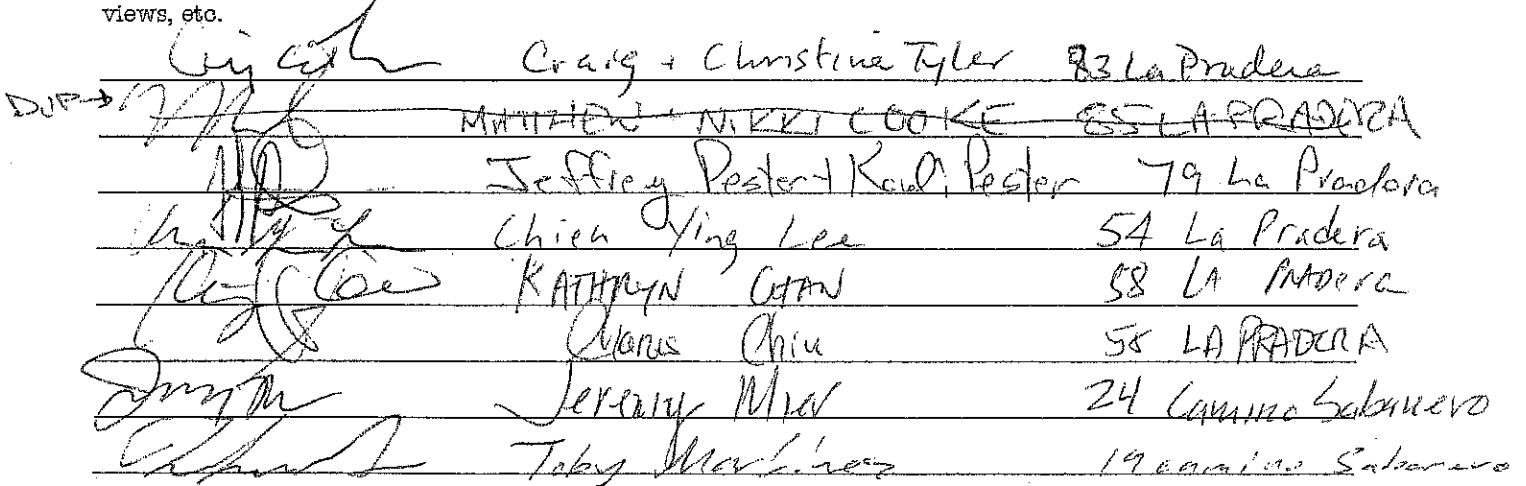 views, etc.
Craig + Christina Tyler 83 La Pradera
DUP→ MATTHEW + NIKKI COOKE 85 LA PRADERA
Jeffrey Pester + Pester 79 La Pradera
Chien Ying Lee 54 La Pradera
KATHRYN CHAN 58 LA PRADERA
Chiu 58 LA PRADERA
Jeremy 24 Camino Sabanero
Toby Martinez 19 camino Sabanero